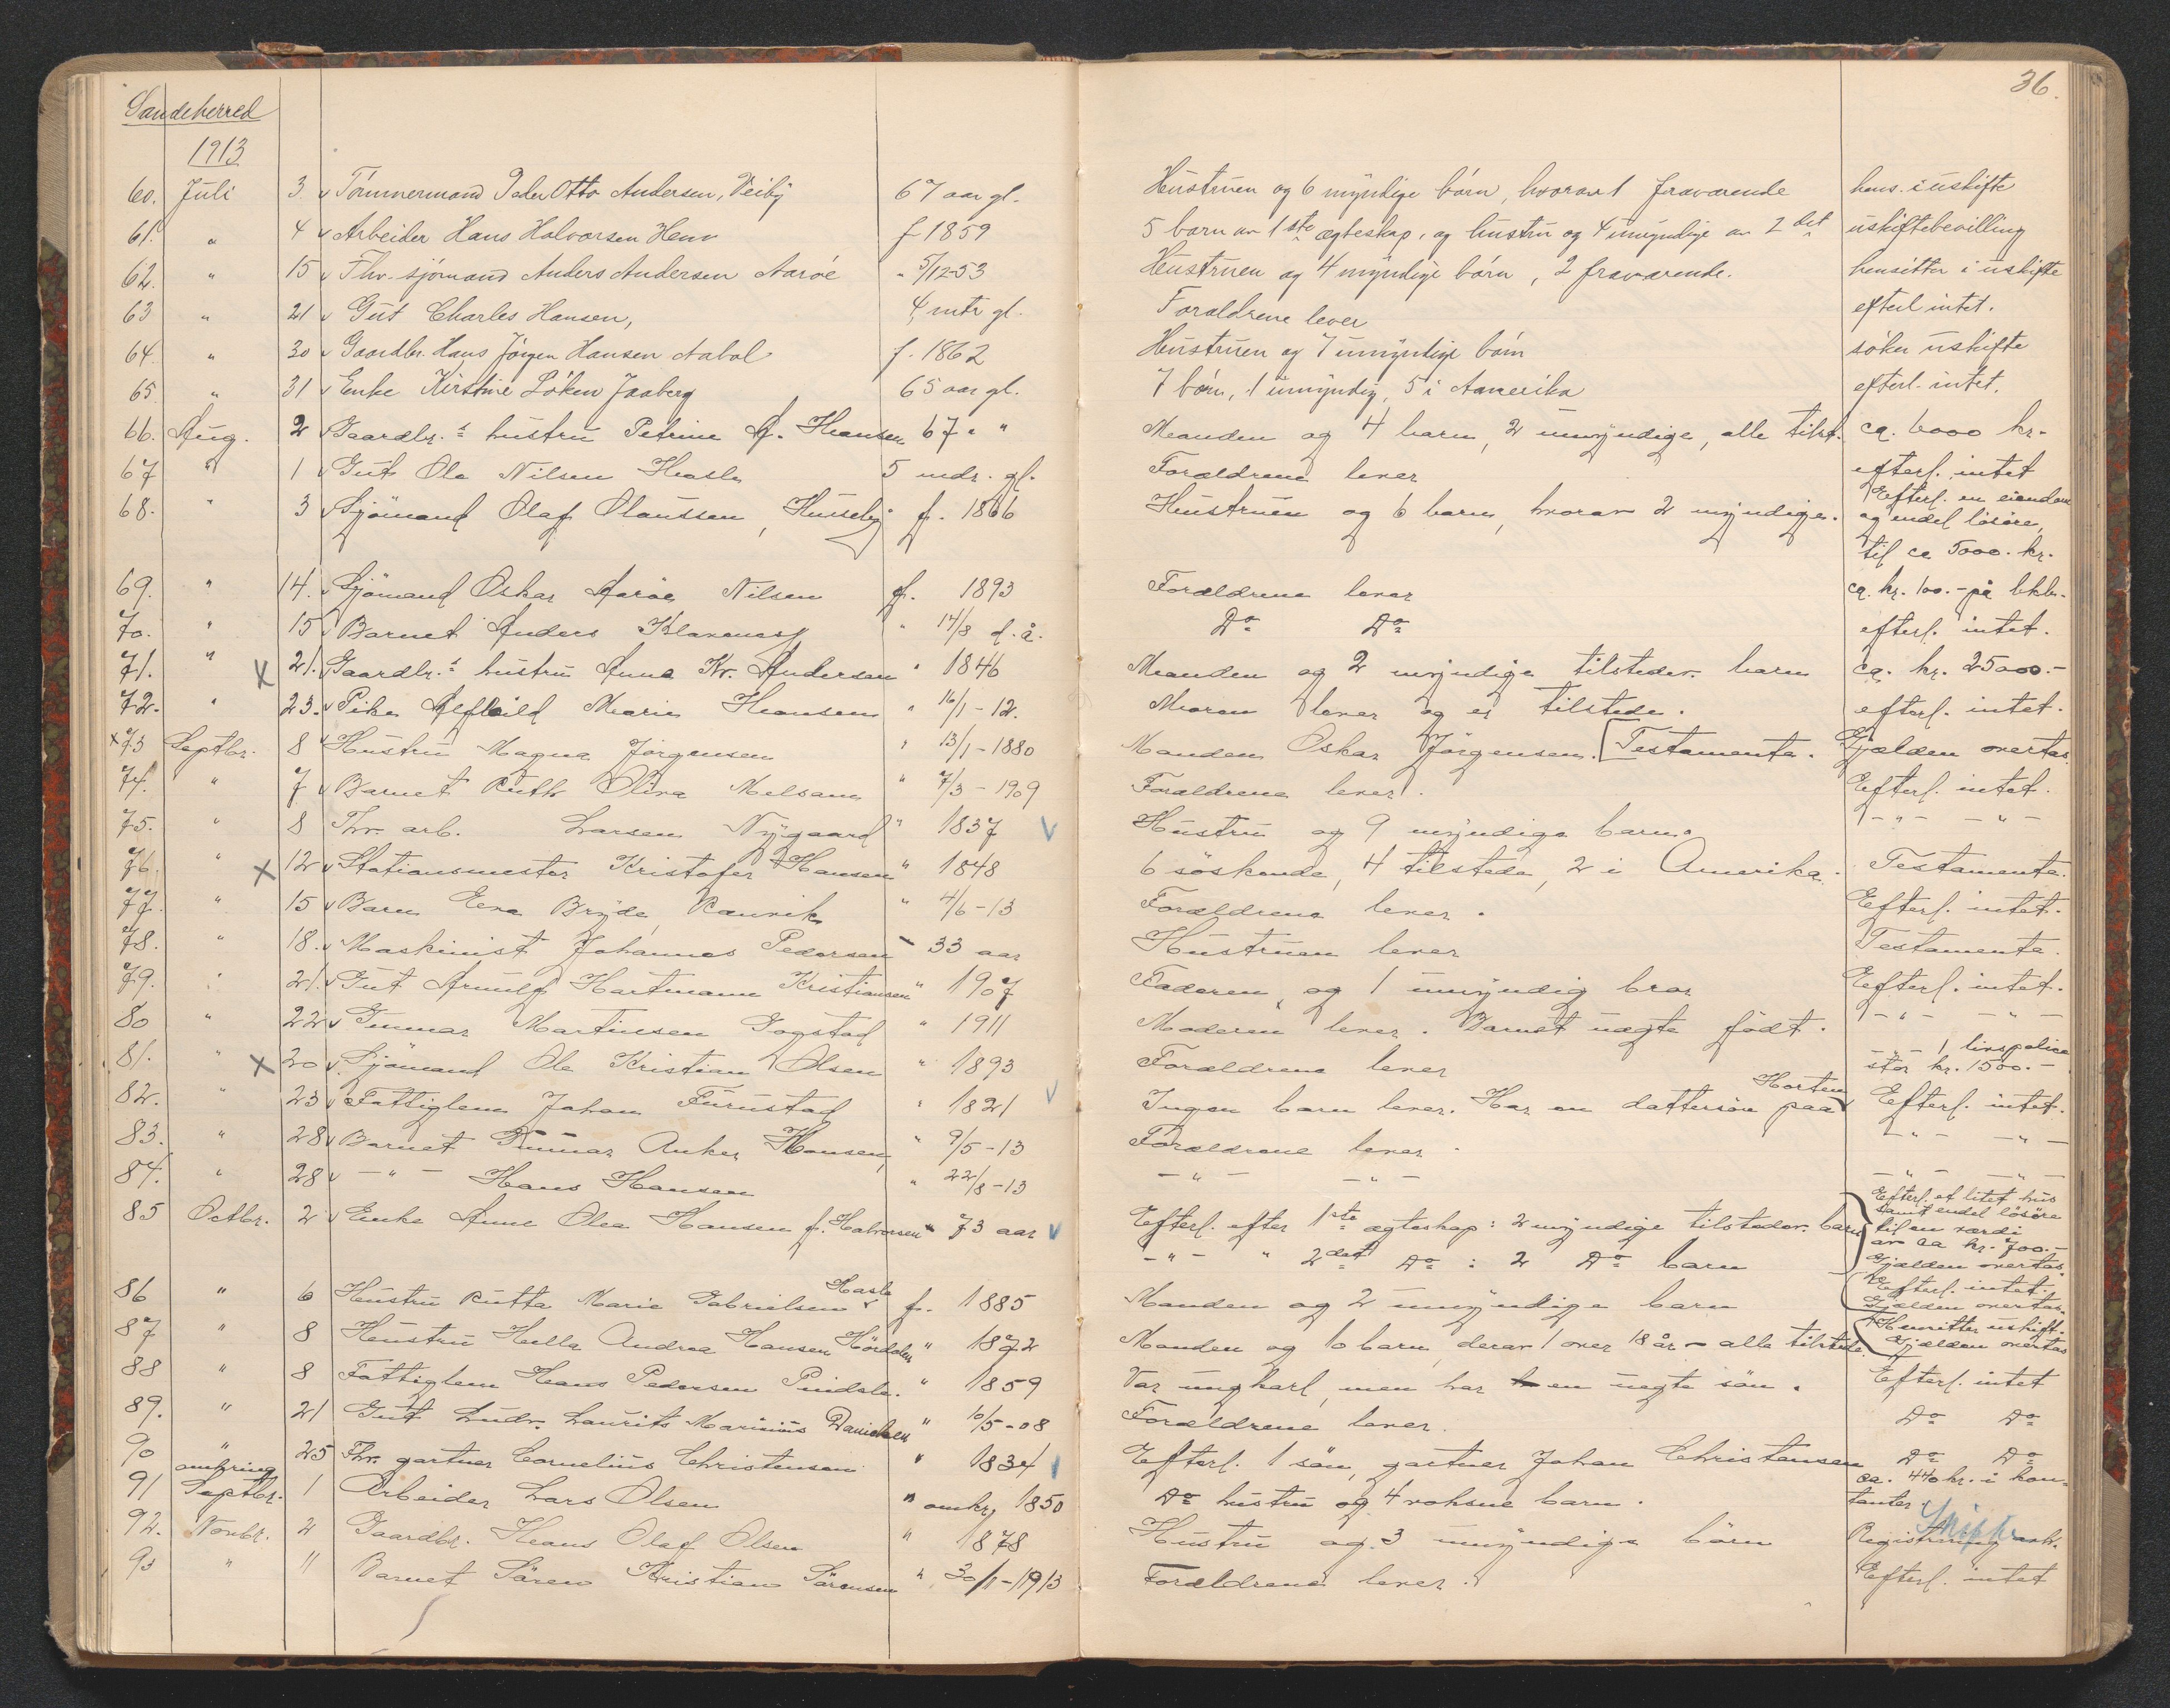 36.
Sandeherred
1913
60. Juli 3 Tömmermand Peder Otto Andersen, Veiby 67 aar gl. Hustruen og 6 myndige börn, hvorav 1 fraværende hens. i uskifte
61. " 4 Arbeider Hans Halvorsen Hem f 1859 5 barn av 1ste ægteskap, og hustru og 4 umyndige av 2det uskiftebevilling
62. " 15 Fhv. sjömand Anders Andersen Aaröe " 5/12-53 Hustruen og 4 myndige börn, 2 fraværende. hensitter i uskifte
63 " 21 Gut Charles Hansen, 4 mtr gl. Forældrene lever efterl intet.
64. " 30 Gaardbr. Hans Jörgen Hansen Aabol f. 1862 Hustruen og 7 umyndige börn söker uskifte
65. " 31 Enke Kirstine Löken Jaaberg 65 aar gl. 7 börn, 1 umyndig, 5 i Amerika efterl. intet.
66. Aug. 2 Gaardbr.s hustru Petrine A. Hansen 67 " " Manden og 4 barn, 2 umyndige, alle tilst. ca. 6000 kr.
67 " 1 Gut Ole Nilsen Hasle 5 mdr. gl. Forældrene lever efterl. intet
68. " 3 Sjömand Olaf Olaussen, Huseby f. 1866 Hustruen og 6 barn, hvorav 2 myndige. Efterl. en eiendom
og endel lösöre,
til ca 5000. kr.
69. " 14. Sjömand Oskar Aaröe Nilsen f. 1893 Forældrene lever ca. kr. 100.- på bkb.
70. " 15 Barnet Anders Klavenes " 14/8 d.å. Do Do efterl. intet.
71. " x 21. Gaardbr.s hustru Anna Kr. Andersen " 1846 Manden og 2 myndige tilstedev. barn ca. kr. 25000.-
72. " 23. Pike Alfhild Marie Hansen " 16/1-12. Moren lever og er tilstede. efterl. intet.
x 73 Septbr. 8 Hustru Magna Jörgensen " 13/1-1880 Manden Oskar Jörgensen. [Testamente. Gjælden overtas.
74. " 7 Barnet Ruth Oliva Melsom " 7/3-1909 Forældrene lever. Efterl. intet.
75. " 8 Fhv. arb. Larsen Nygaard " 1837 Hustru og 9 myndige barn. -"- -"-
76. " x 12 Stationsmester Kristofer Hansen " 1848 6 söskende, 4 tilstede, 2 i Amerika. Testamente.
77. " 15 Barn Eva Bryde, Ranvik " 4/6-13 Forældrene lever. Efterl. intet.
78. " 18. Maskinist Johannes Pedersen - 33 aar Hustruen lever Testamente.
79. " 21. Gut Arnulf Hartmann Kristiansen " 1907 Faderen, og 1 umyndig bror Efterl. intet.
80 " 22 Gunnar Martinsen Gogstad " 1911 Moderen lever. Barnet uægte födt. -"- -"-
81. " x 20 Sjömand Ole Kristian Olsen " 1893 Forældrene lever -"- 1 livspolice
stor kr. 1500.-
82. " 23 Fattiglem Johan Furustad " 1821 Ingen barn lever. Har en dattersön paa Horten Efterl. intet.
83. " 28 Barnet Gunnar Anker Hansen " 9/5-13 Forældrene lever. -"- -"-
84. " 28 -"- Hans Hansen " 22/8-13 -"- -"- -"- -"-
85 Octbr. 2 Enke Anne Olea Hansen f. Halvorsen " 73 aar Efterl. efter 1ste ægteskap: 2 myndige tilstedev. barn Efterl. et litet hus
samt endel lösöre
til en værdi
av ca kr. 700.-
-"- " 2det Do : 2 Do barn Gjælden overtas.
86 " 6 Hustru Rutta Marie Gabrielsen Hasle f. 1885 Manden og 2 umyndige barn Efterl. intet.
Gjælden overtas.
87 " 8 Hustru Hella Andrea Hansen Hördalen " 1872 Manden og 10 barn, derav 1 over 18 år - alle tilstede. Hensitter uskift.
Gjælden overtas
88 " 8 Fattiglem Hans Pedersen Pindsle. " 1859 Var ungkarl, men har en uegte sön. Efterl. intet
89. " 21 Gut Ludv. Laurits Marinius Danielsen " 10/5-08 Forældrene lever. Do Do
90 " 25 Fhv. gartner Cornelius Christensen " 1834 Efterl. 1 sön, gartner Johan Christensen Do Do
91 omkring Septbr. 1 Arbeider Lars Olsen " omkr. 1850 Do hustru og 4 voksne barn. ca. 440 kr. i kon-
tanter.
92. Novbr. 2 Gaardbr. Hans Olaf Olsen " 1878 Hustru og 3 umyndige börn Registrering
Skifte
93 " 11 Barnet Sören Kristian Sörensen " 30/1-1913 Forældrene lever. Efterl. intet